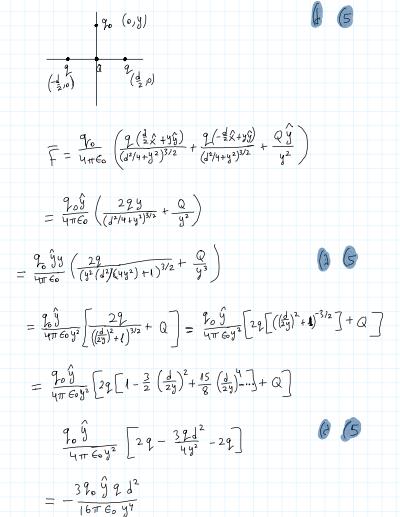 q₀ (0,y)
(5
q Q q
(-d/2,0) (d/2,0)
F̅ = q₀/4πε₀ ( q(d/2 x̂+yŷ)/(d²/4+y²)^3/2 + q(-d/2 x̂+yŷ)/(d²/4+y²)^3/2 + Qŷ/y² )
= q₀ŷ/4πε₀ ( 2qy/(d²/4+y²)^3/2 + Q/y² )
= q₀ŷy/4πε₀ ( 2q/(y²(d²/(4y²)+1)^3/2 + Q/y³ )
(5
= q₀ŷ/4πε₀y² [ 2q/((d/2y)²+1)^3/2 + Q ] = q₀ŷ/4πε₀y² [ 2q[((d/2y)²+1)^-3/2] + Q ]
= q₀ŷ/4πε₀y² [ 2q[1 - 3/2 (d/2y)² + 15/8 (d/2y)⁴ ...] + Q ]
q₀ŷ/4πε₀y² [ 2q - 3qd²/4y² - 2q ]
(5
= - 3q₀ŷqd²/16πε₀y⁴